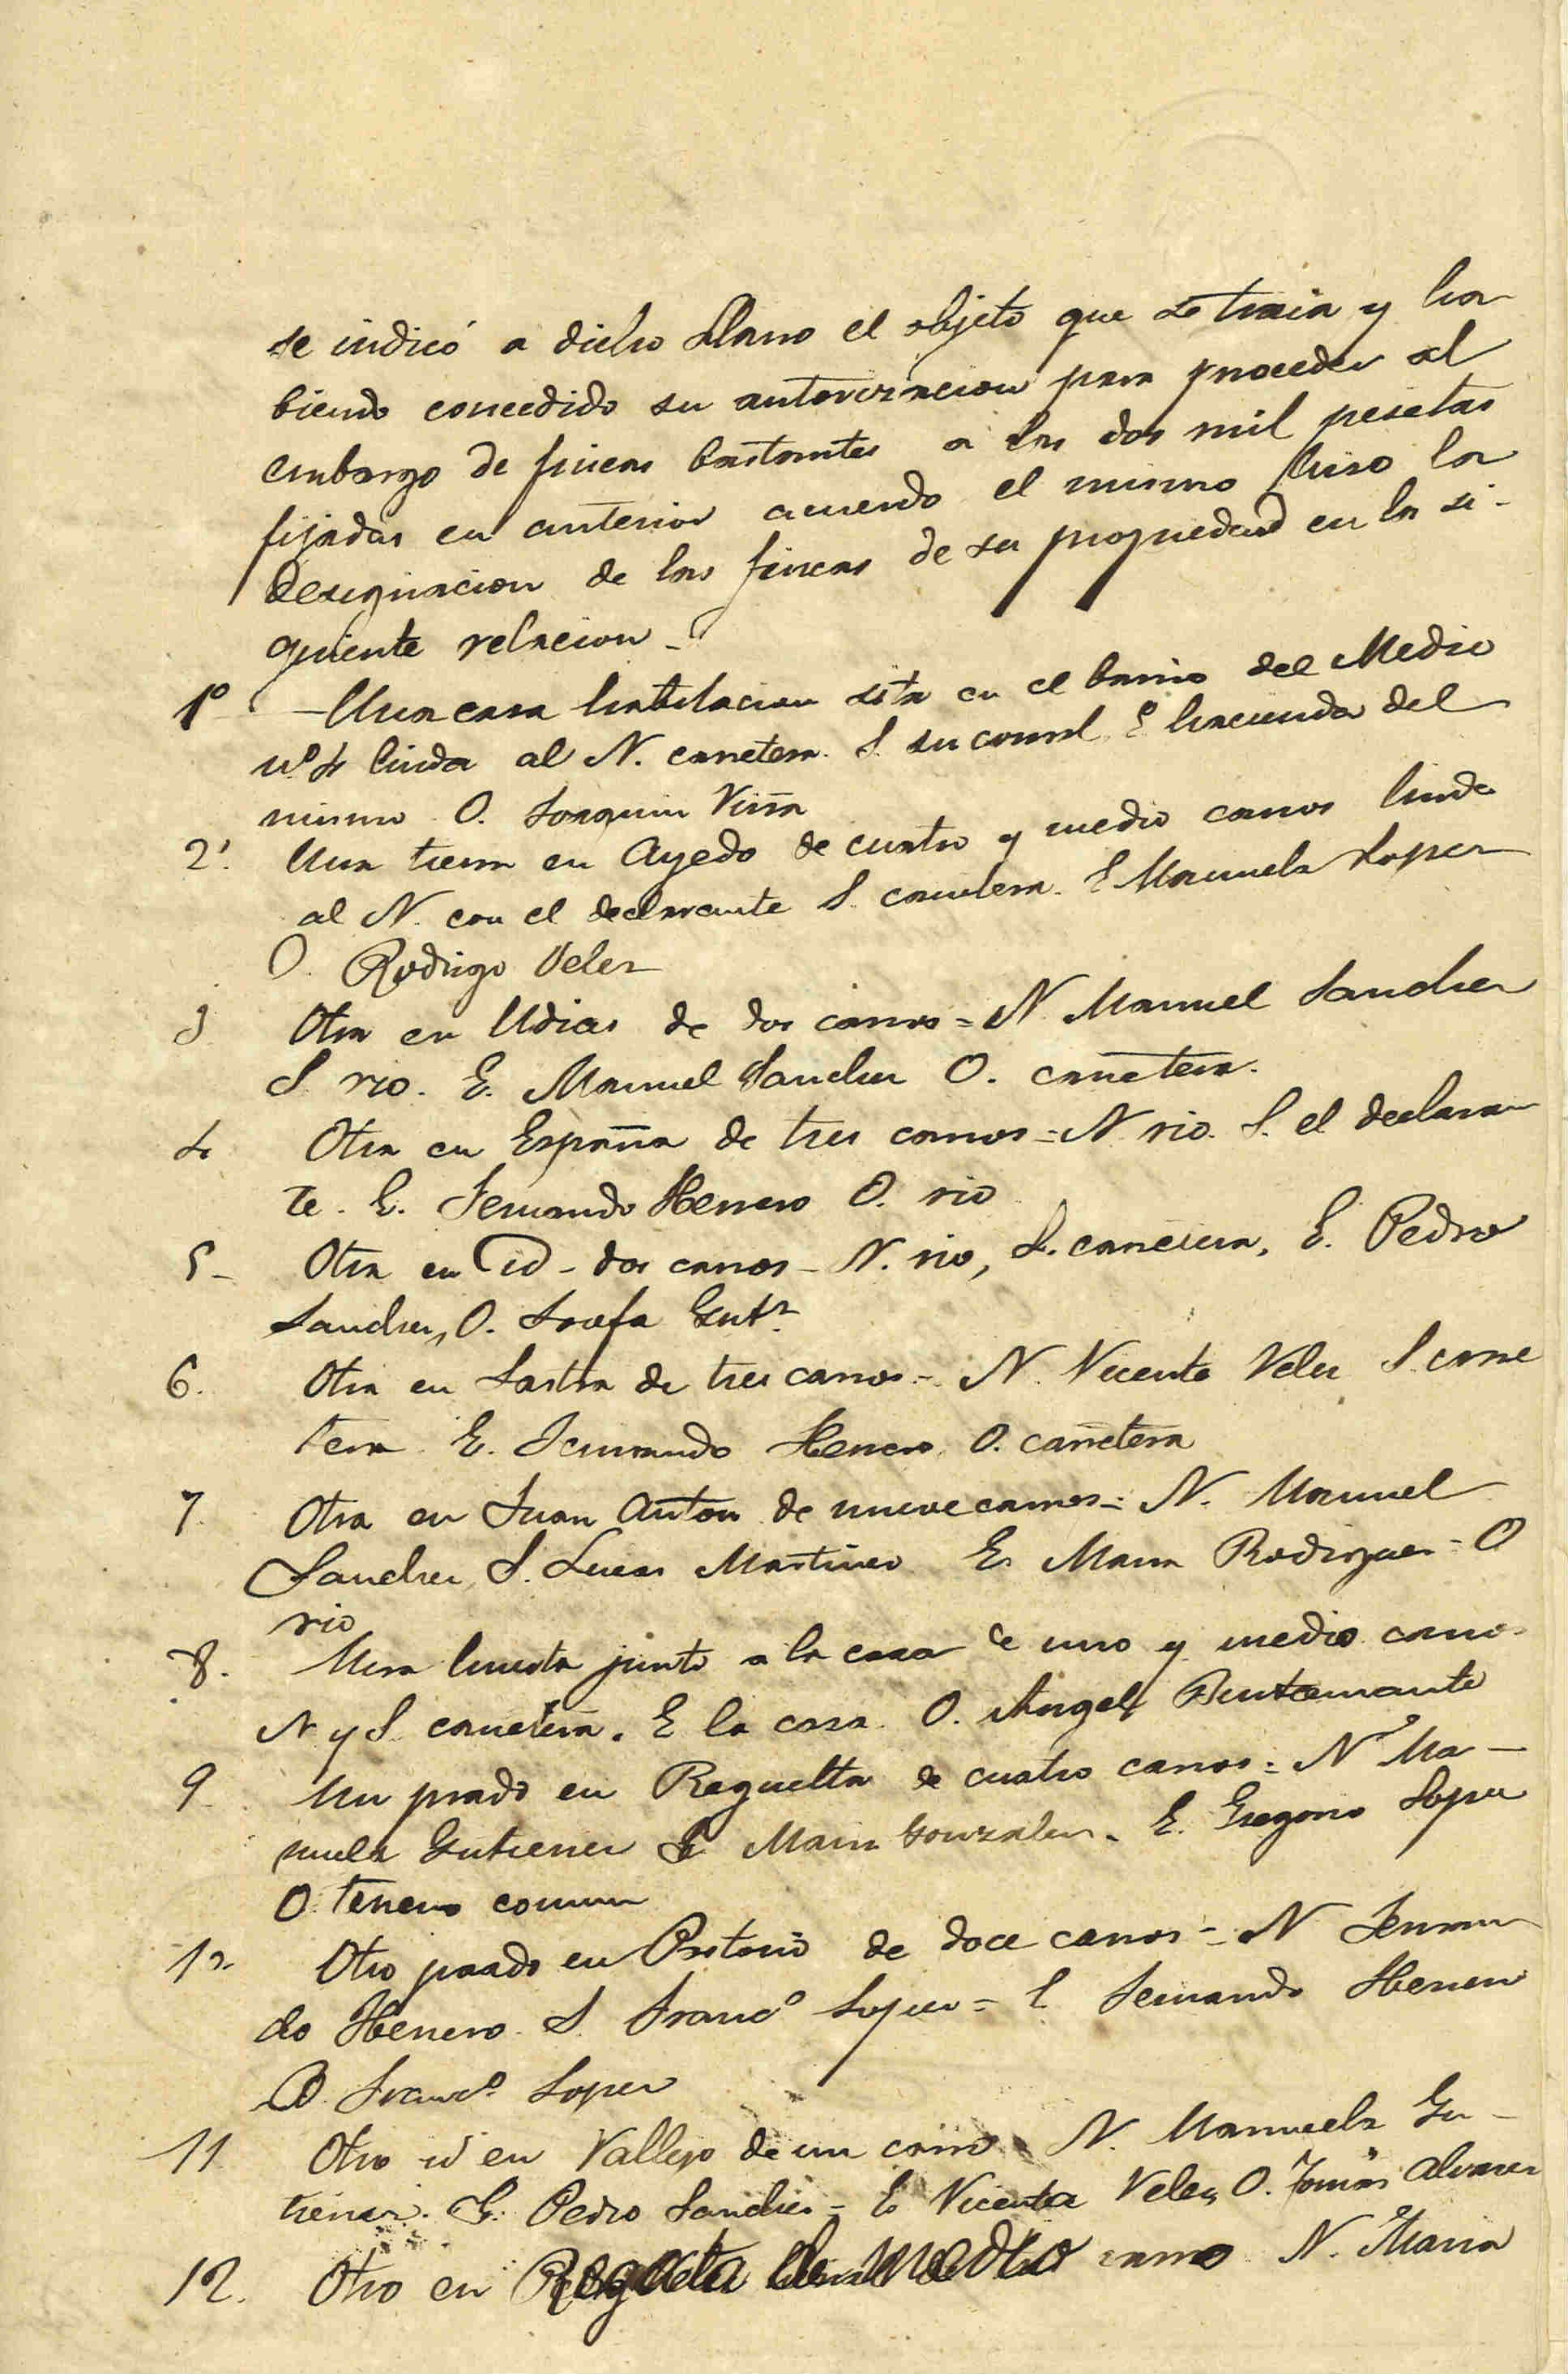 se indicó a dicho Llano el objeto que se traia y ha
biendo concedido su autorizacion para proceder al
embargo de fincas bastantes a las dos mil pesetas
fijadas en anterior acuerdo el mismo hiso la
designacion de las fincas de su propiedad en la si-
guiente relacion -
1º - Una casa habitacion sita en el barrio del Medio
nº 4 linda al N. carretera. S. su corral E. hacienda del
mismo O. Joaquin Viña
2ª. Una tierra en Ayedo de cuatro y medio carros linda
al N. con el declarante S. carretera. E Manuela Lopez
O. Rodrigo Velez
3 Otra en Udias de dos carros = N Manuel Sanchez
S. rio. E. Manuel Sanchez O. carretera.
4 Otra en España de tres carros = N. rio. S. el declaran
te. E. Fernando Herrero O. rio
5- Otra en id - dos carros - N. rio, S. carretera, E. Pedro
Sanchez, O. Josefa Gutz.
6. Otra en Sastra de tres carros - N. Vicente Velez S. carre
tera E. Fernando Herrero O. carretera
7. Otra en Juan Anton de nueve carros = N. Manuel
Sanchez S. Lucas Martinez E. Maria Rodriguez - O
rio
8. Una huerta junto a la casa de uno y medio carro.
N y S. carretera. E la casa. O. Angel Bustamante
9 Un prado en Reguelta de cuatro carros = N Ma-
nuela Gutierrez S Maria Gonzalez. E. Gregorio Lopez
O. terreno comun
10. Otro prado en de doce carros = N Fernan
do Herrero. S. Francº Lopez = E Fernando Herrero
O. Francº Lopez
11 Otro id en Vallejo de un carro N. Manuela Gu-
tierrez. S. Pedro Sanchez = E Vicenta Velez O. Tomás Alvarez
12. Otro en de medio carro N. Maria